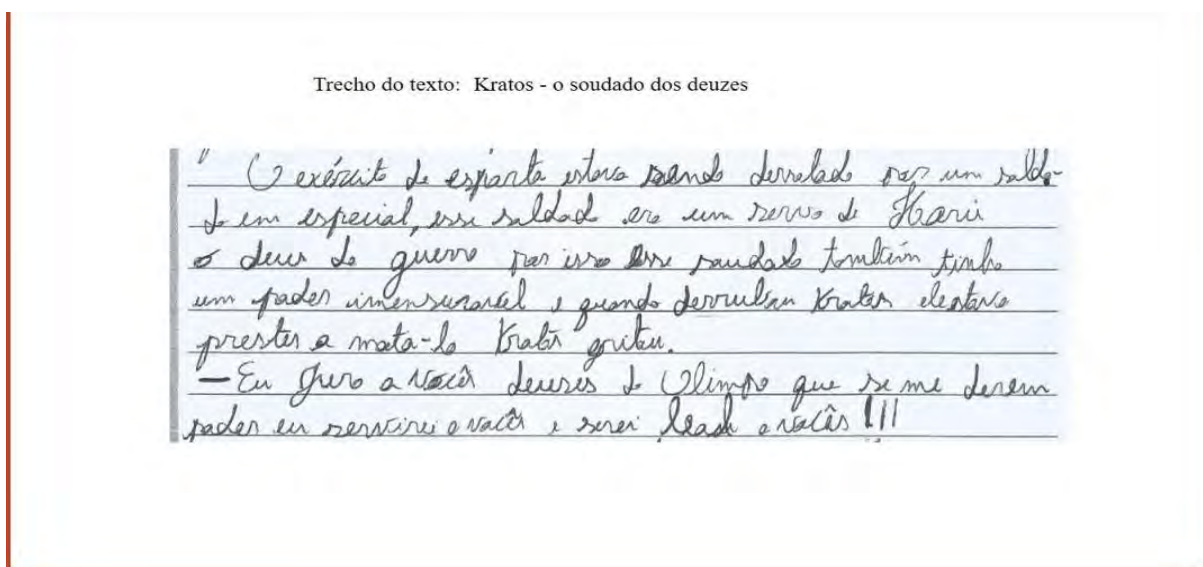 Trecho do texto: Kratos - o soudado dos deuzes
O exército de esparta estava sendo derrotado por um solda-
do em especial, esse soldado era um servo de
o deus da guerra por isso esse soudado também tinha
um poder imensuravel e quando Kratos elestava
prestes a mata-lo Kratos gritou.
— Eu Juro a vocês deuses do Olimpo que se me derem
poder eu servirei a vocês e serei leaol a vocês !!!